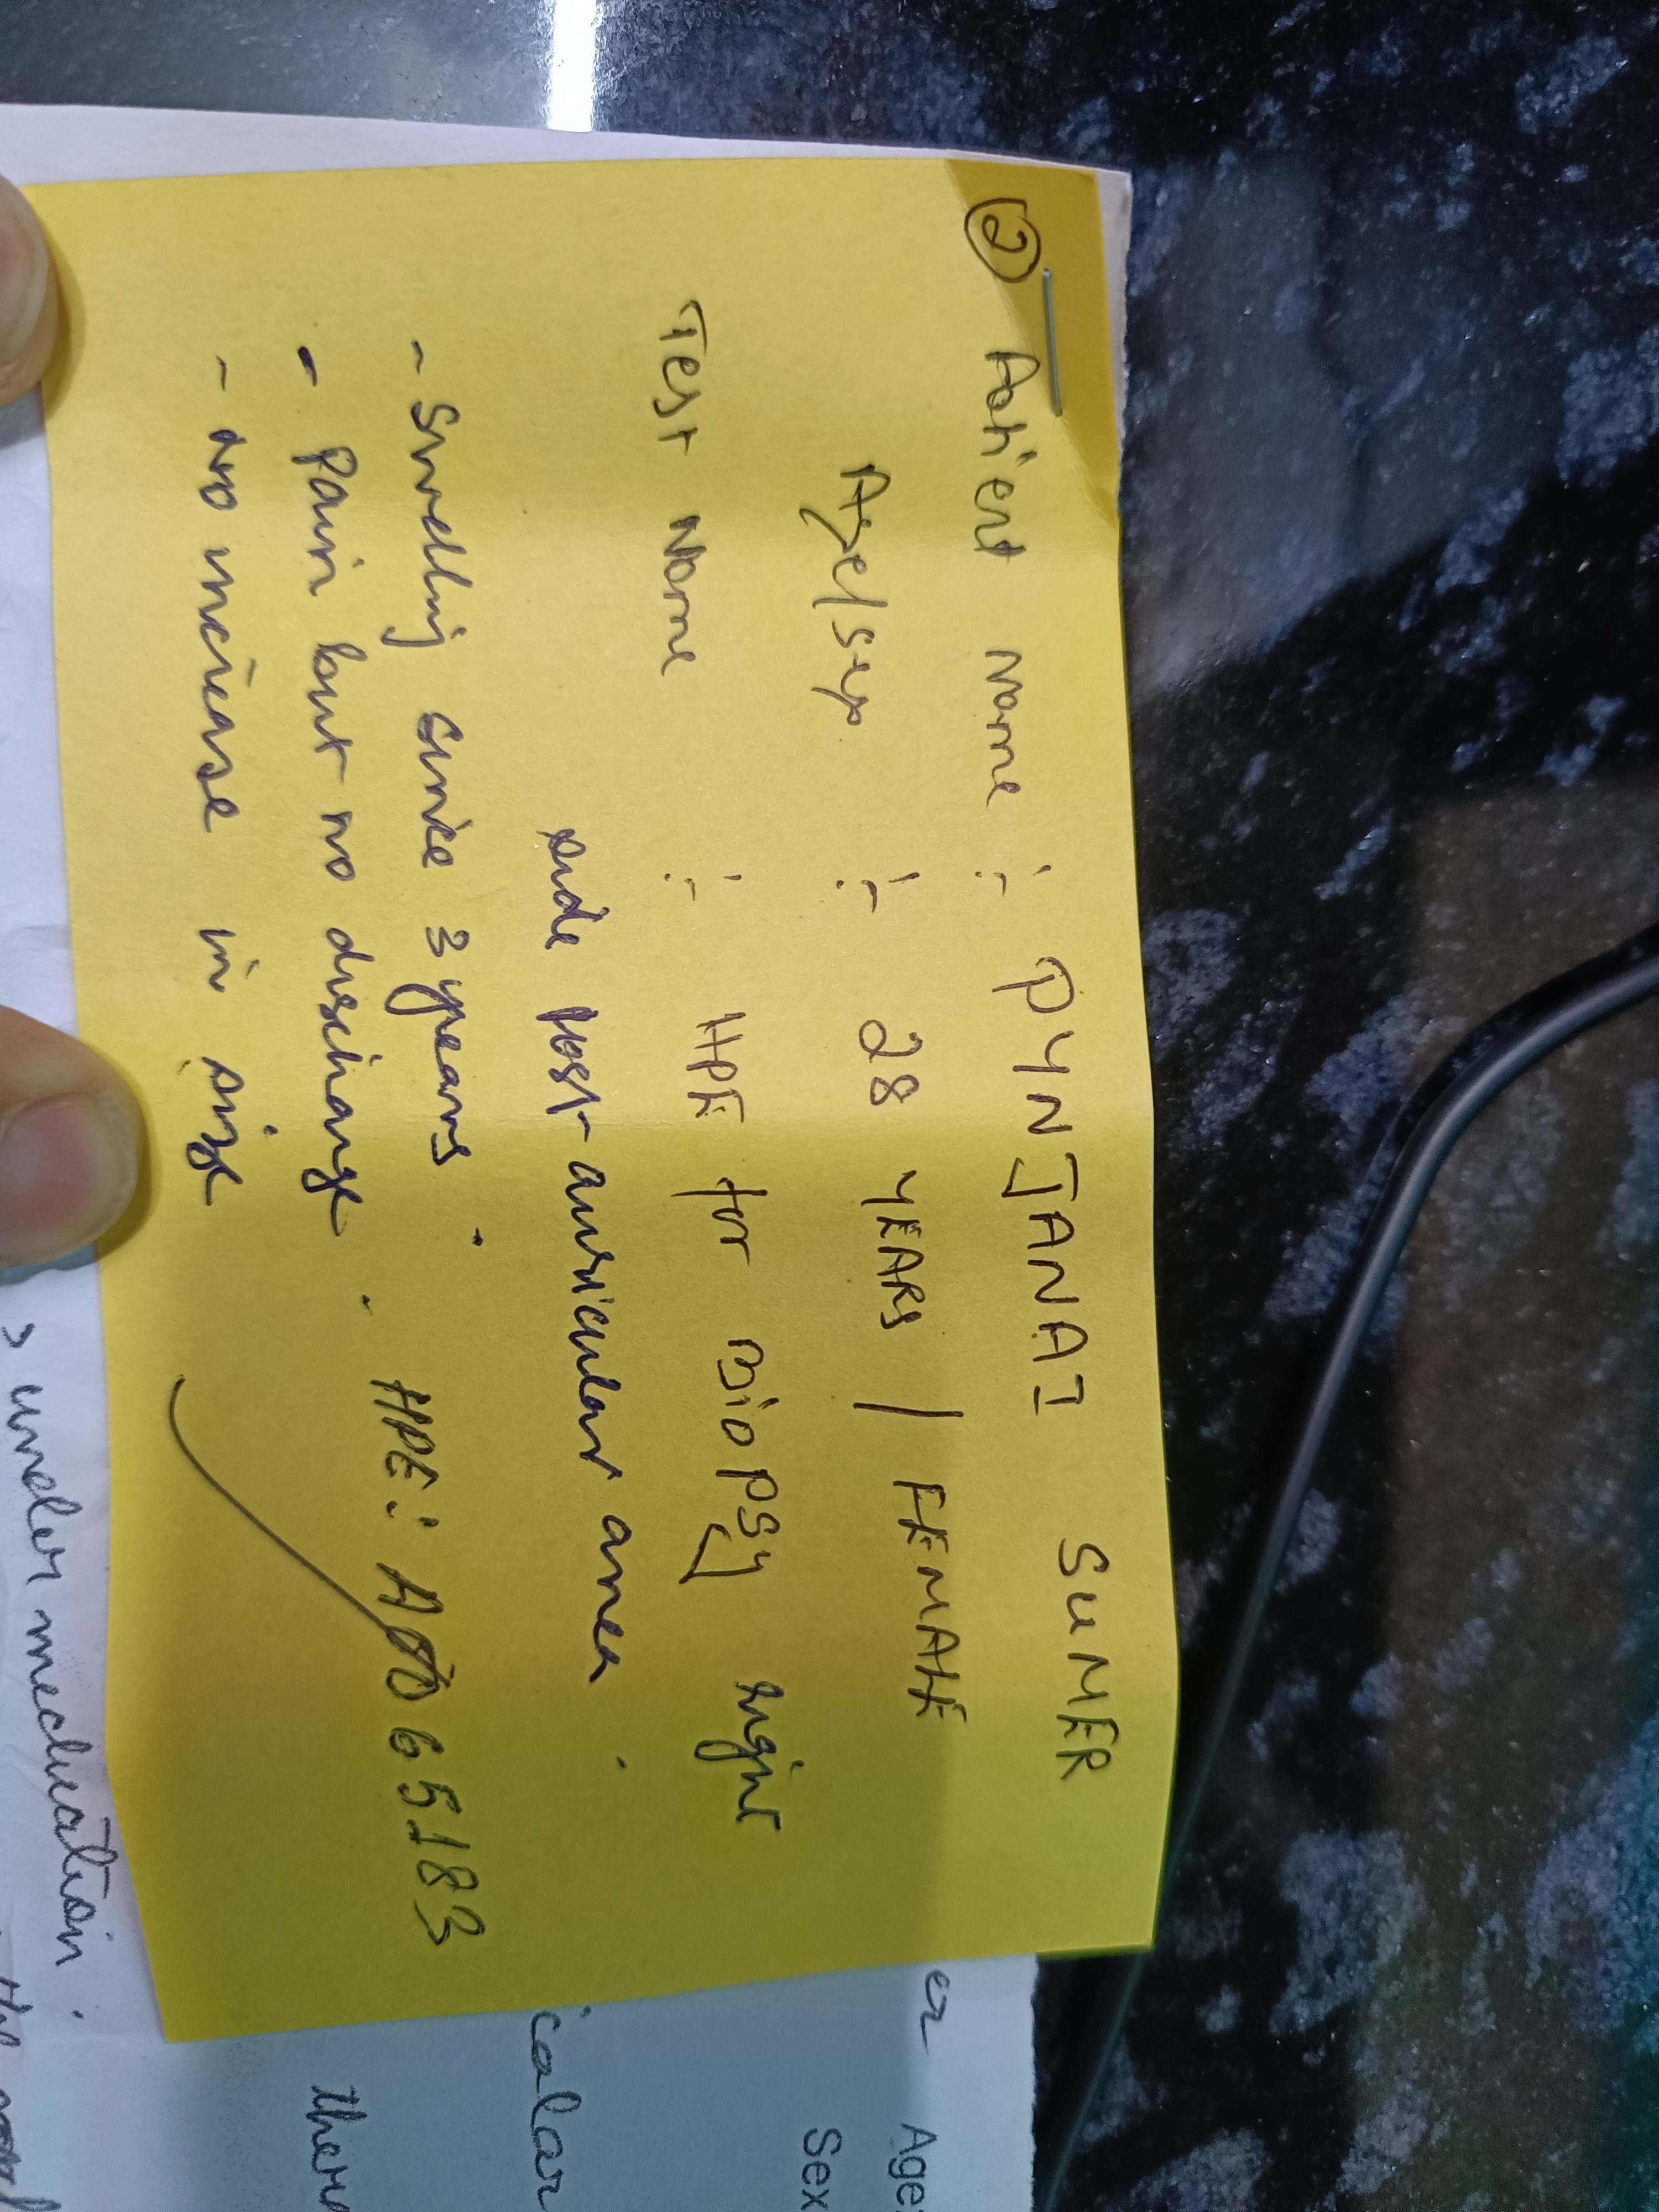 ②
Patient Name :- PYNJANAI SUMER
Age/sex :- 28 YEARS / FEMALE
Test Name :- HPE for Biopsy Right
side Post-auricular area.
- Swelling since 3 years.
- Pain but no discharge.
- No increase in size
HPE: A0065183
er
Age:
Sex
cular
there
> under medication.